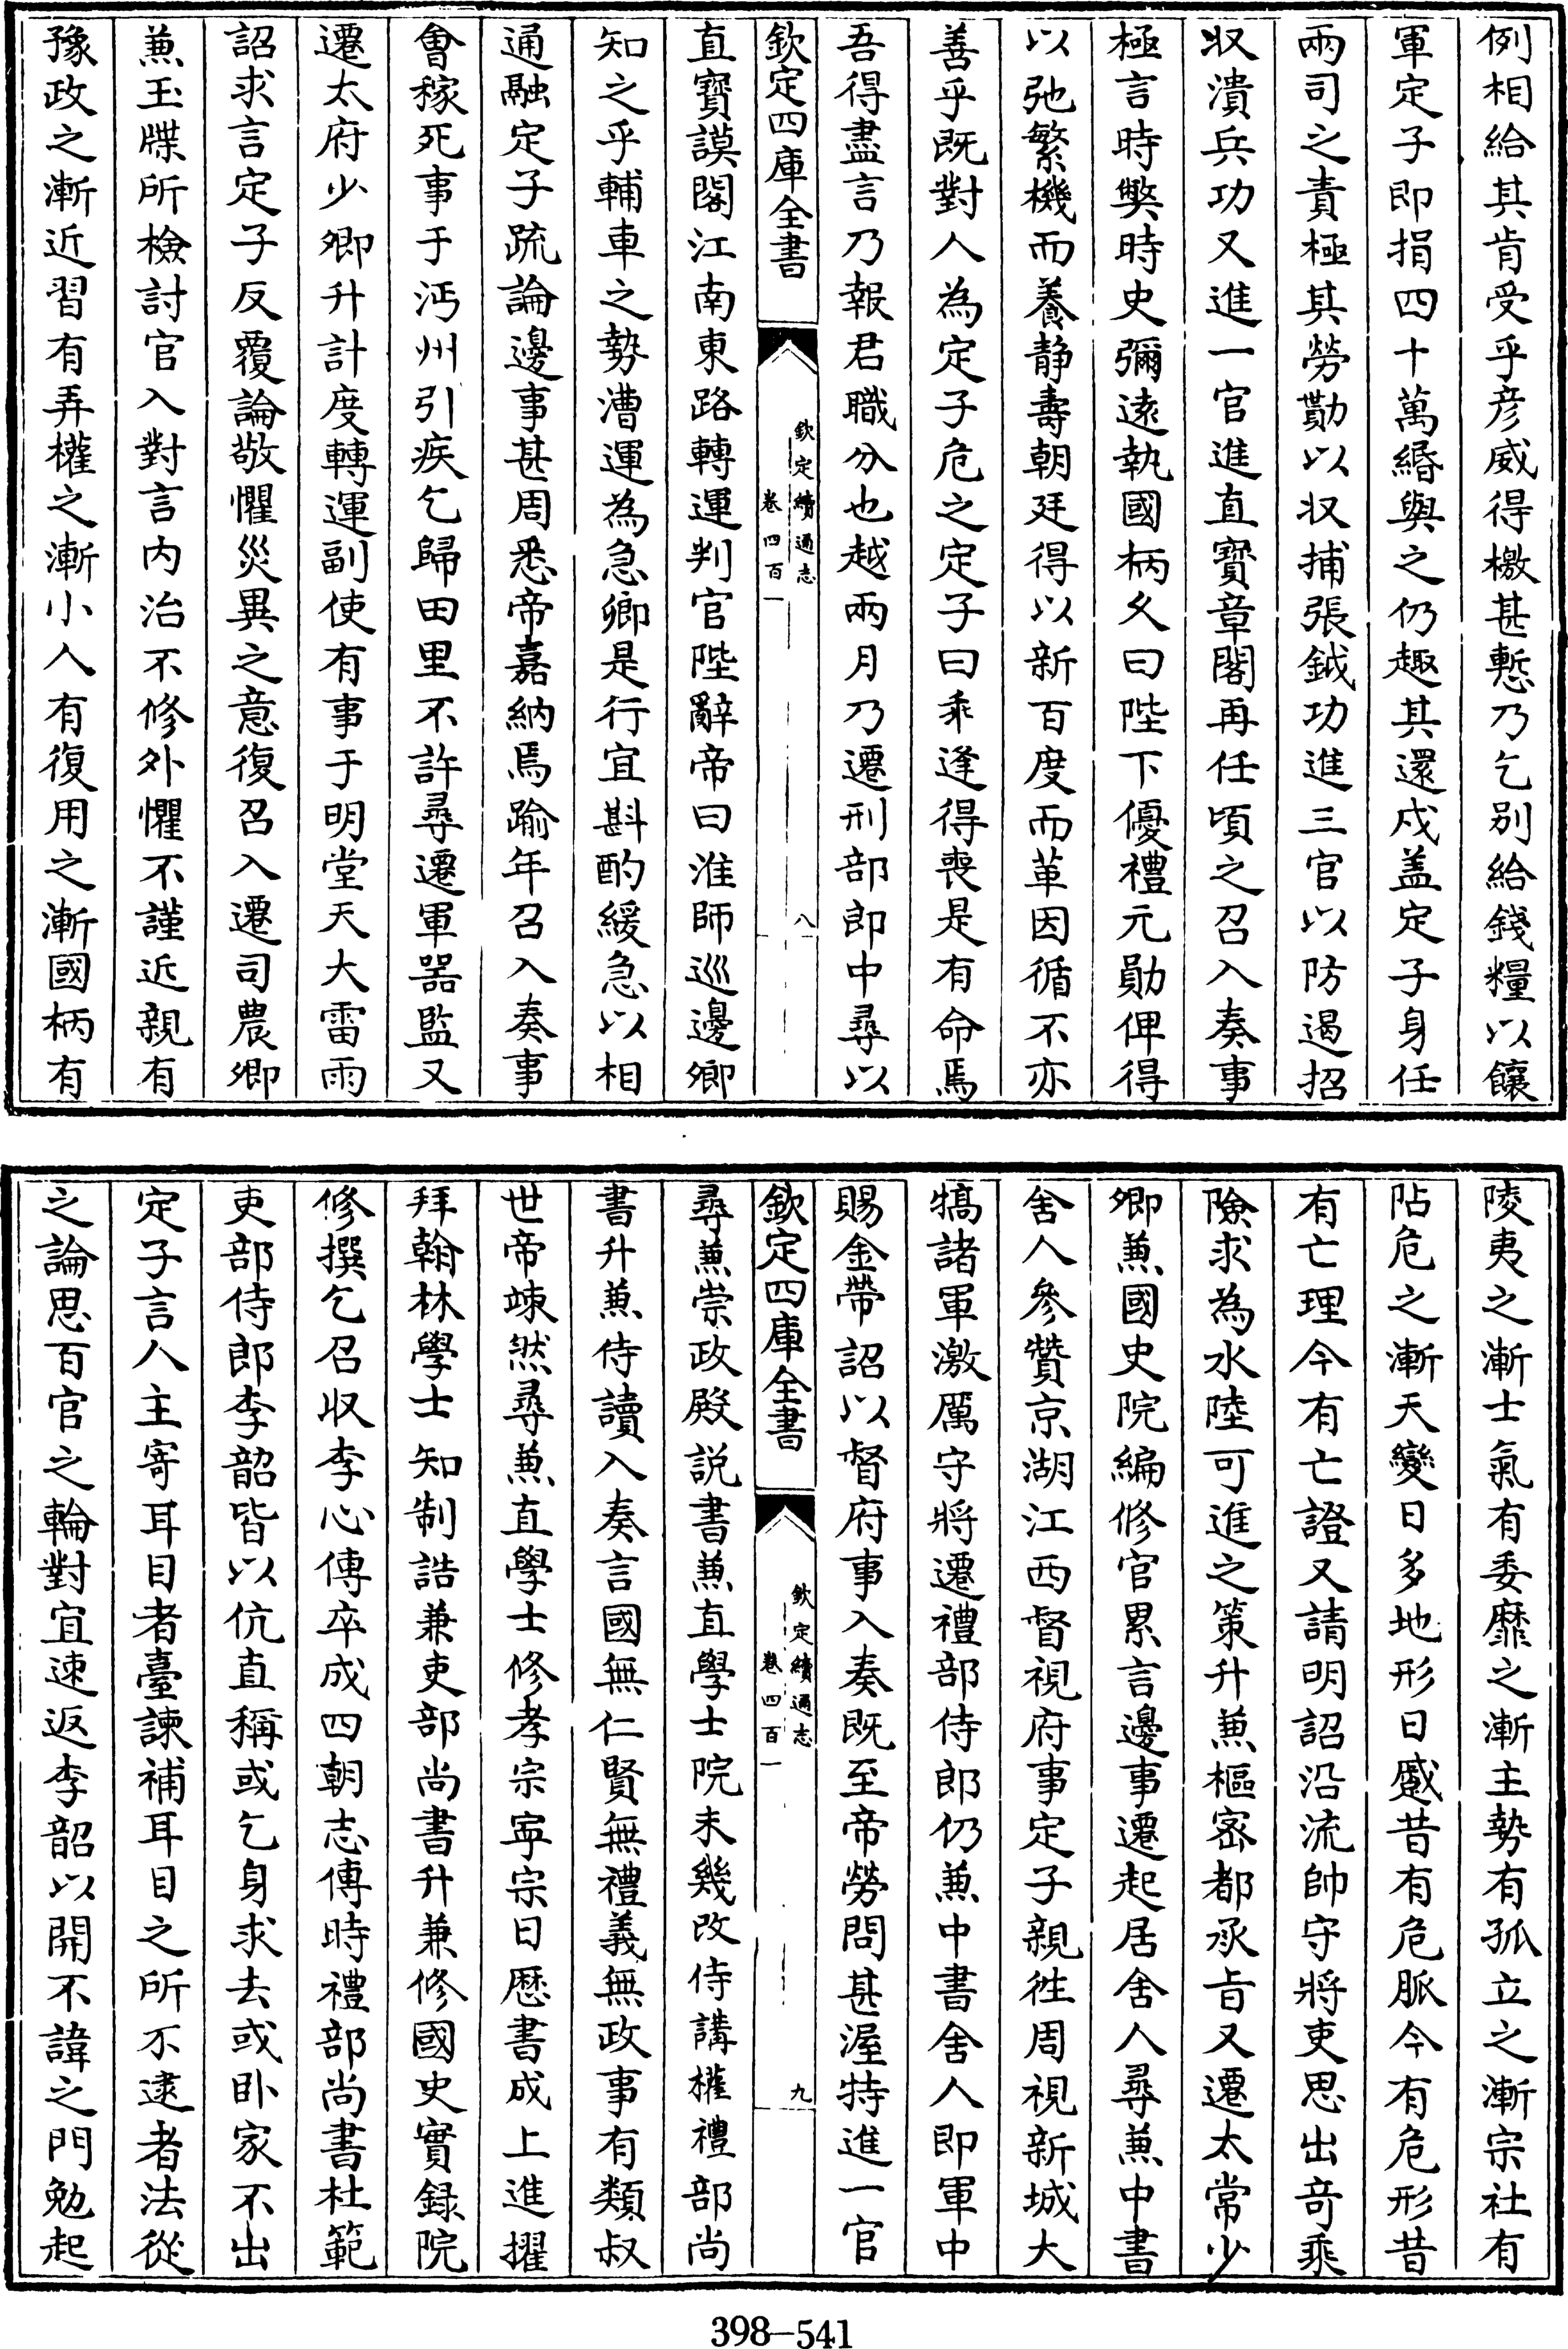 例相給其肯受乎彦威得檄甚慙乃乞别給錢糧以饟
軍定子即捐四十萬緡與之仍趣其還戍盖定子身任
兩司之責極其勞勩以収捕張鉞功進三官以防遏招
収潰兵功又進一官進直寶章閣再任頃之召入奏事
極言時弊時史彌逺執國柄乆曰陛下優禮元勛俾得
以弛繁機而養静壽朝廷得以新百度而革因循不亦
善乎既對人為定子危之定子曰乖逢得喪是有命焉
吾得盡言乃報君職分也越兩月乃遷刑部郎中尋以
欽定四庫全書
欽定續通志
卷四百一
八
直寶謨閣江南東路轉運判官陛辭帝曰淮師巡邊卿
知之乎輔車之勢漕運為急卿是行宜斟酌緩急以相
通融定子疏論邊事甚周悉帝嘉納焉踰年召入奏事
會稼死事于沔州引疾乞歸田里不許尋遷軍器監又
遷太府少卿升計度轉運副使有事于明堂天大雷雨
詔求言定子反覆論敬懼災異之意復召入遷司農卿
兼玉牒所檢討官入對言内治不修外懼不謹近親有
豫政之漸近習有弄權之漸小人有復用之漸國柄有
陵夷之漸士氣有委靡之漸主勢有孤立之漸宗社有
阽危之漸天變日多地形日蹙昔有危脈今有危形昔
有亡理今有亡證又請明詔沿流帥守將吏思出竒乘
險求為水陸可進之策升兼樞密都承㫖又遷太常少
卿兼國史院編修官累言邊事遷起居舍人尋兼中書
舍人參贊京湖江西督視府事定子親徃周視新城大
犒諸軍激厲守將遷禮部侍郎仍兼中書舍人即軍中
賜金帶詔以督府事入奏既至帝勞問甚渥特進一官
欽定四庫全書
欽定續通志
卷四百一
九
尋兼崇政殿説書兼直學士院未幾改侍講權禮部尚
書升兼侍讀入奏言國無仁賢無禮義無政事有類叔
世帝竦然尋兼直學士修孝宗寧宗日厯書成上進擢
拜翰林學士知制誥兼吏部尚書升兼修國史實録院
修撰乞召収李心傳卒成四朝志傳時禮部尚書杜範
吏部侍郎李韶皆以伉直稱或乞身求去或卧家不出
定子言人主寄耳目者臺諫補耳目之所不逮者法從
之論思百官之輪對宜速返李韶以開不諱之門勉起
398-541